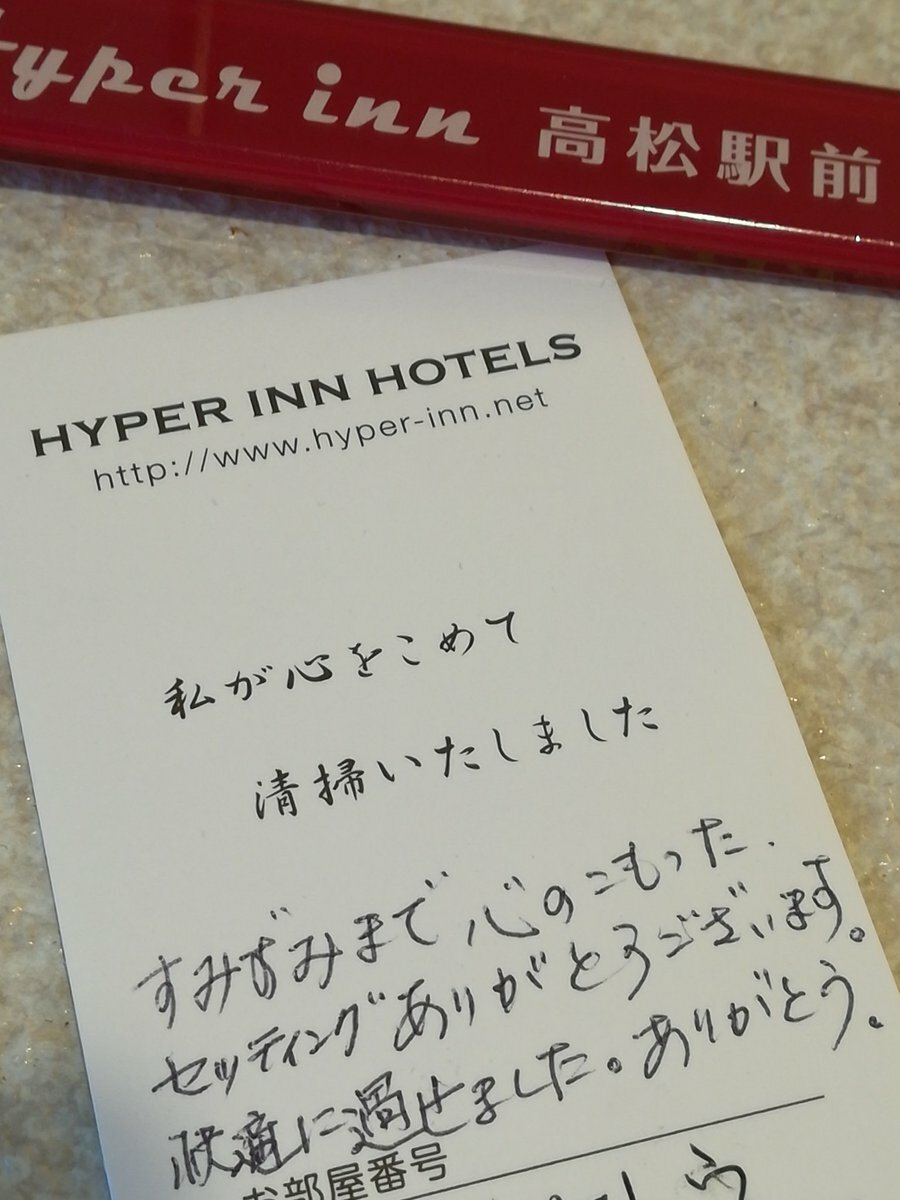 Hyper inn 高松駅前
HYPER INN HOTELS
http://www.hyper-inn.net
私が心をこめて
清掃いたしました
すみずみまで心のこもった、
セッティングありがとうございます。
快適に過せました。ありがとう。
お部屋番号